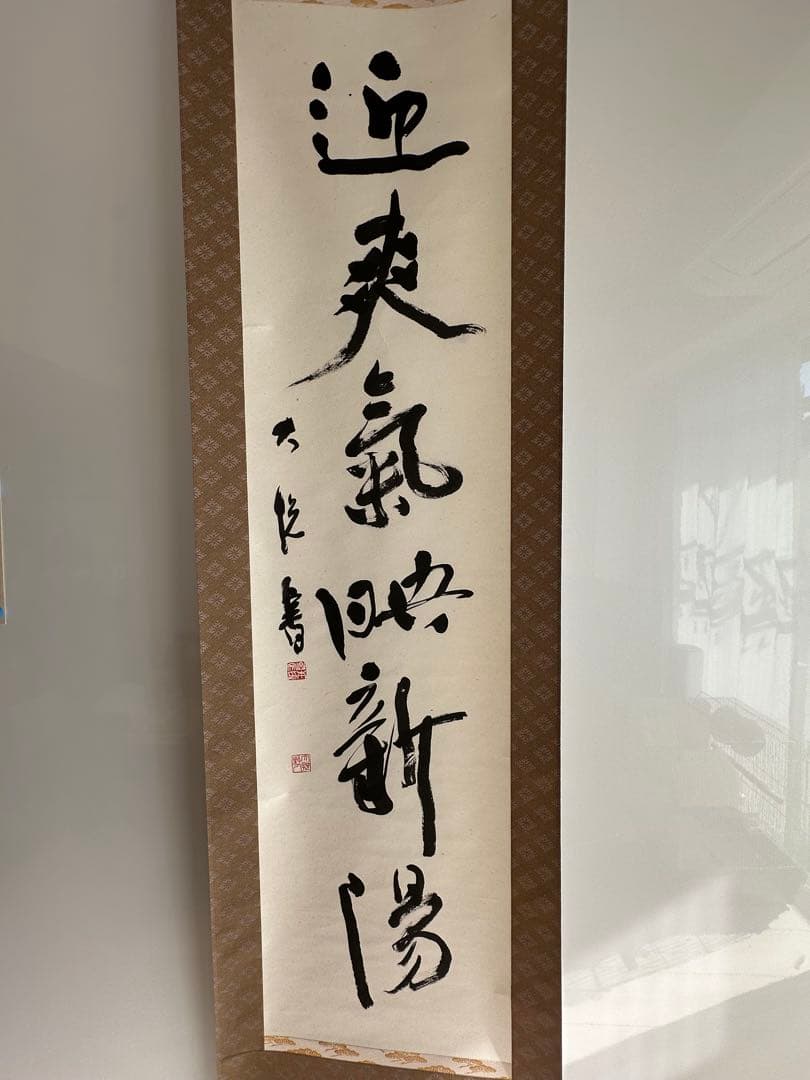 迎爽氣映新陽
大悦書